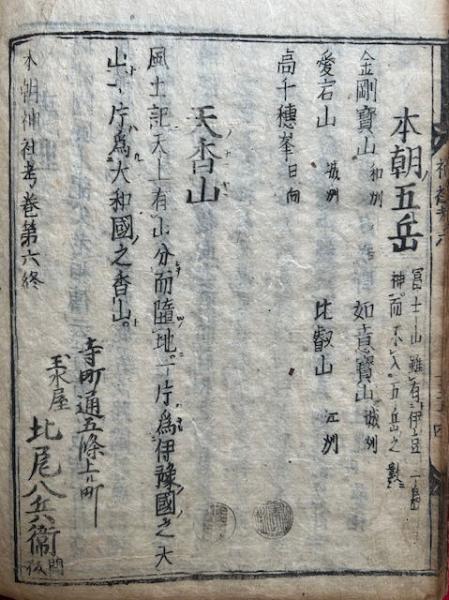 本朝五岳
冨士山雖有伊豆
神而不入五岳之數
金剛寶山 和州 如意寶山 城州
愛宕山 城州 比叡山 江州
高千穗峯 日向
天香山
風土記天上有山分而隨地一片爲伊豫國之大
山一片爲大和國之香山。
本朝神社考卷第六終
寺町通五條上ル町
玉水屋 北尾八兵衛 開板